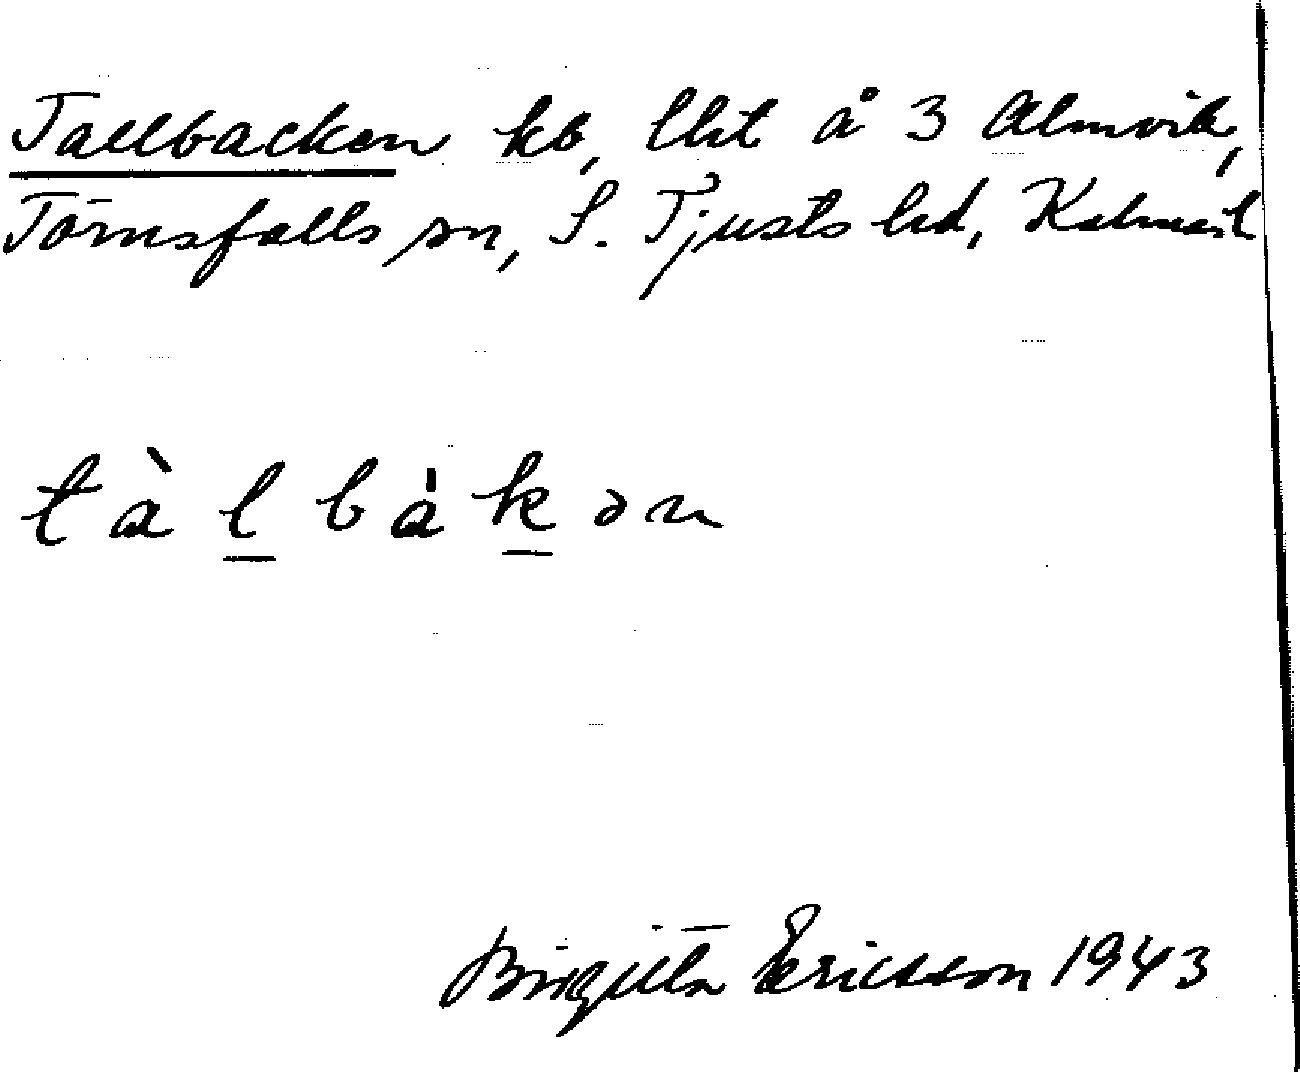 Tallbacken kb, lht å 3 Almvik,
Törnsfalls sn, S. Tjusts hd, Kalmar l
tàl̲bȧk̲ən
Birgitta Ericsson 1943